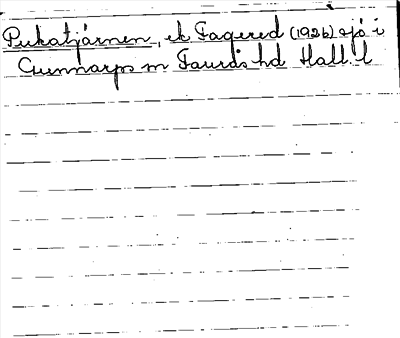 Pukatjärnen, ek Fagered (1926) sjö i
Gunnarps sn Faurås hd Hall. l